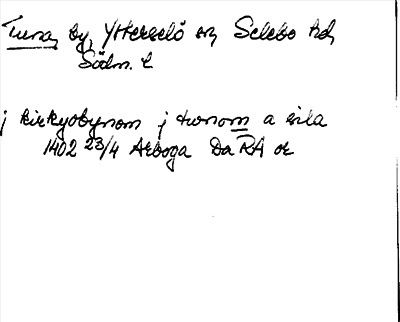 Tuna, by, Ytterselö sn, Selebo hd,
Södm. l
j kirkyobynom j tunom a sila
1402 23/4 Arboga Da RA or